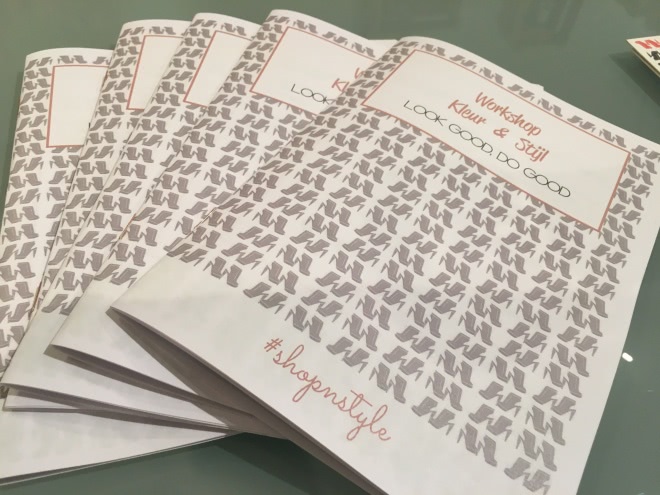 Workshop
Kleur & Stijl
LOOK GOOD, DO GOOD
#shopnstyle
Wo
K
LOOK